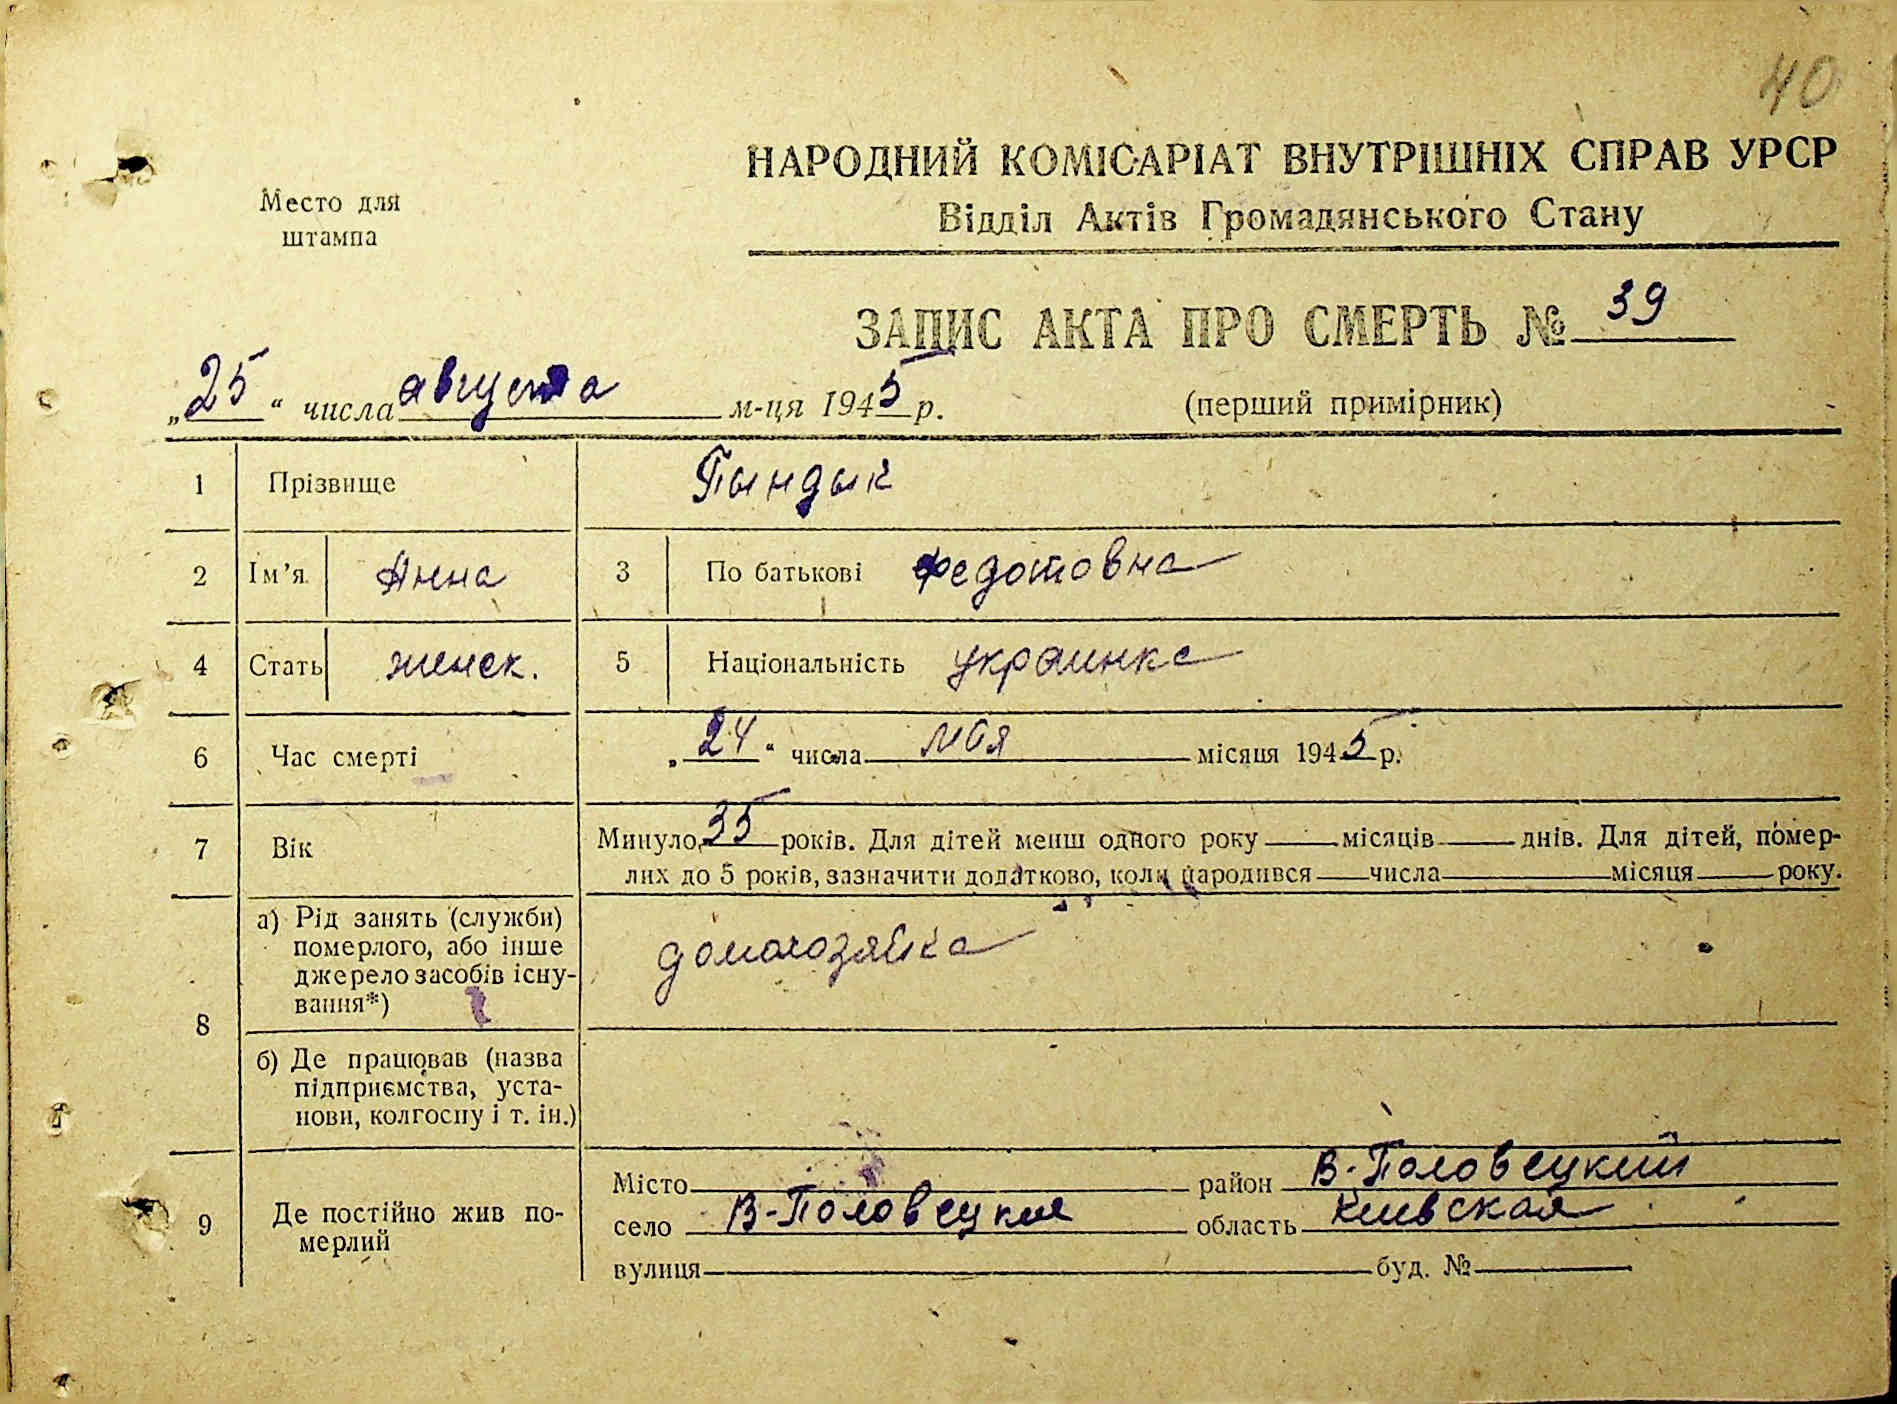 40
НАРОДНИЙ КОМІСАРІАТ ВНУТРІШНІХ СПРАВ УРСР
Место для
штампа
Відділ Актів Громадянського Стану
ЗАПИС АКТА ПРО СМЕРТЬ № 39
„25“ числа августа м-ця 1945 р.
(перший примірник)
1 Прізвище Пындык
2 Ім’я Анна 3 По батькові Федотовна
4 Стать женск. 5 Національність украинка
6 Час смерті „24“ числа мая місяця 1945 р.
7 Вік Минуло 35 років. Для дітей менш одного року місяців днів. Для дітей, помер-
лих до 5 років, зазначити додатково, коли народився числа місяця року.
8 а) Рід занять (служби)
померлого, або інше
джерело засобів існу-
вання*)
домохозяйка
б) Де працював (назва
підприємства, уста-
нови, колгоспу і т. ін.)
9 Де постійно жив по-
мерлий
Місто район В-Половецкий
село В-Половецкая область Киевская
вулиця буд. №